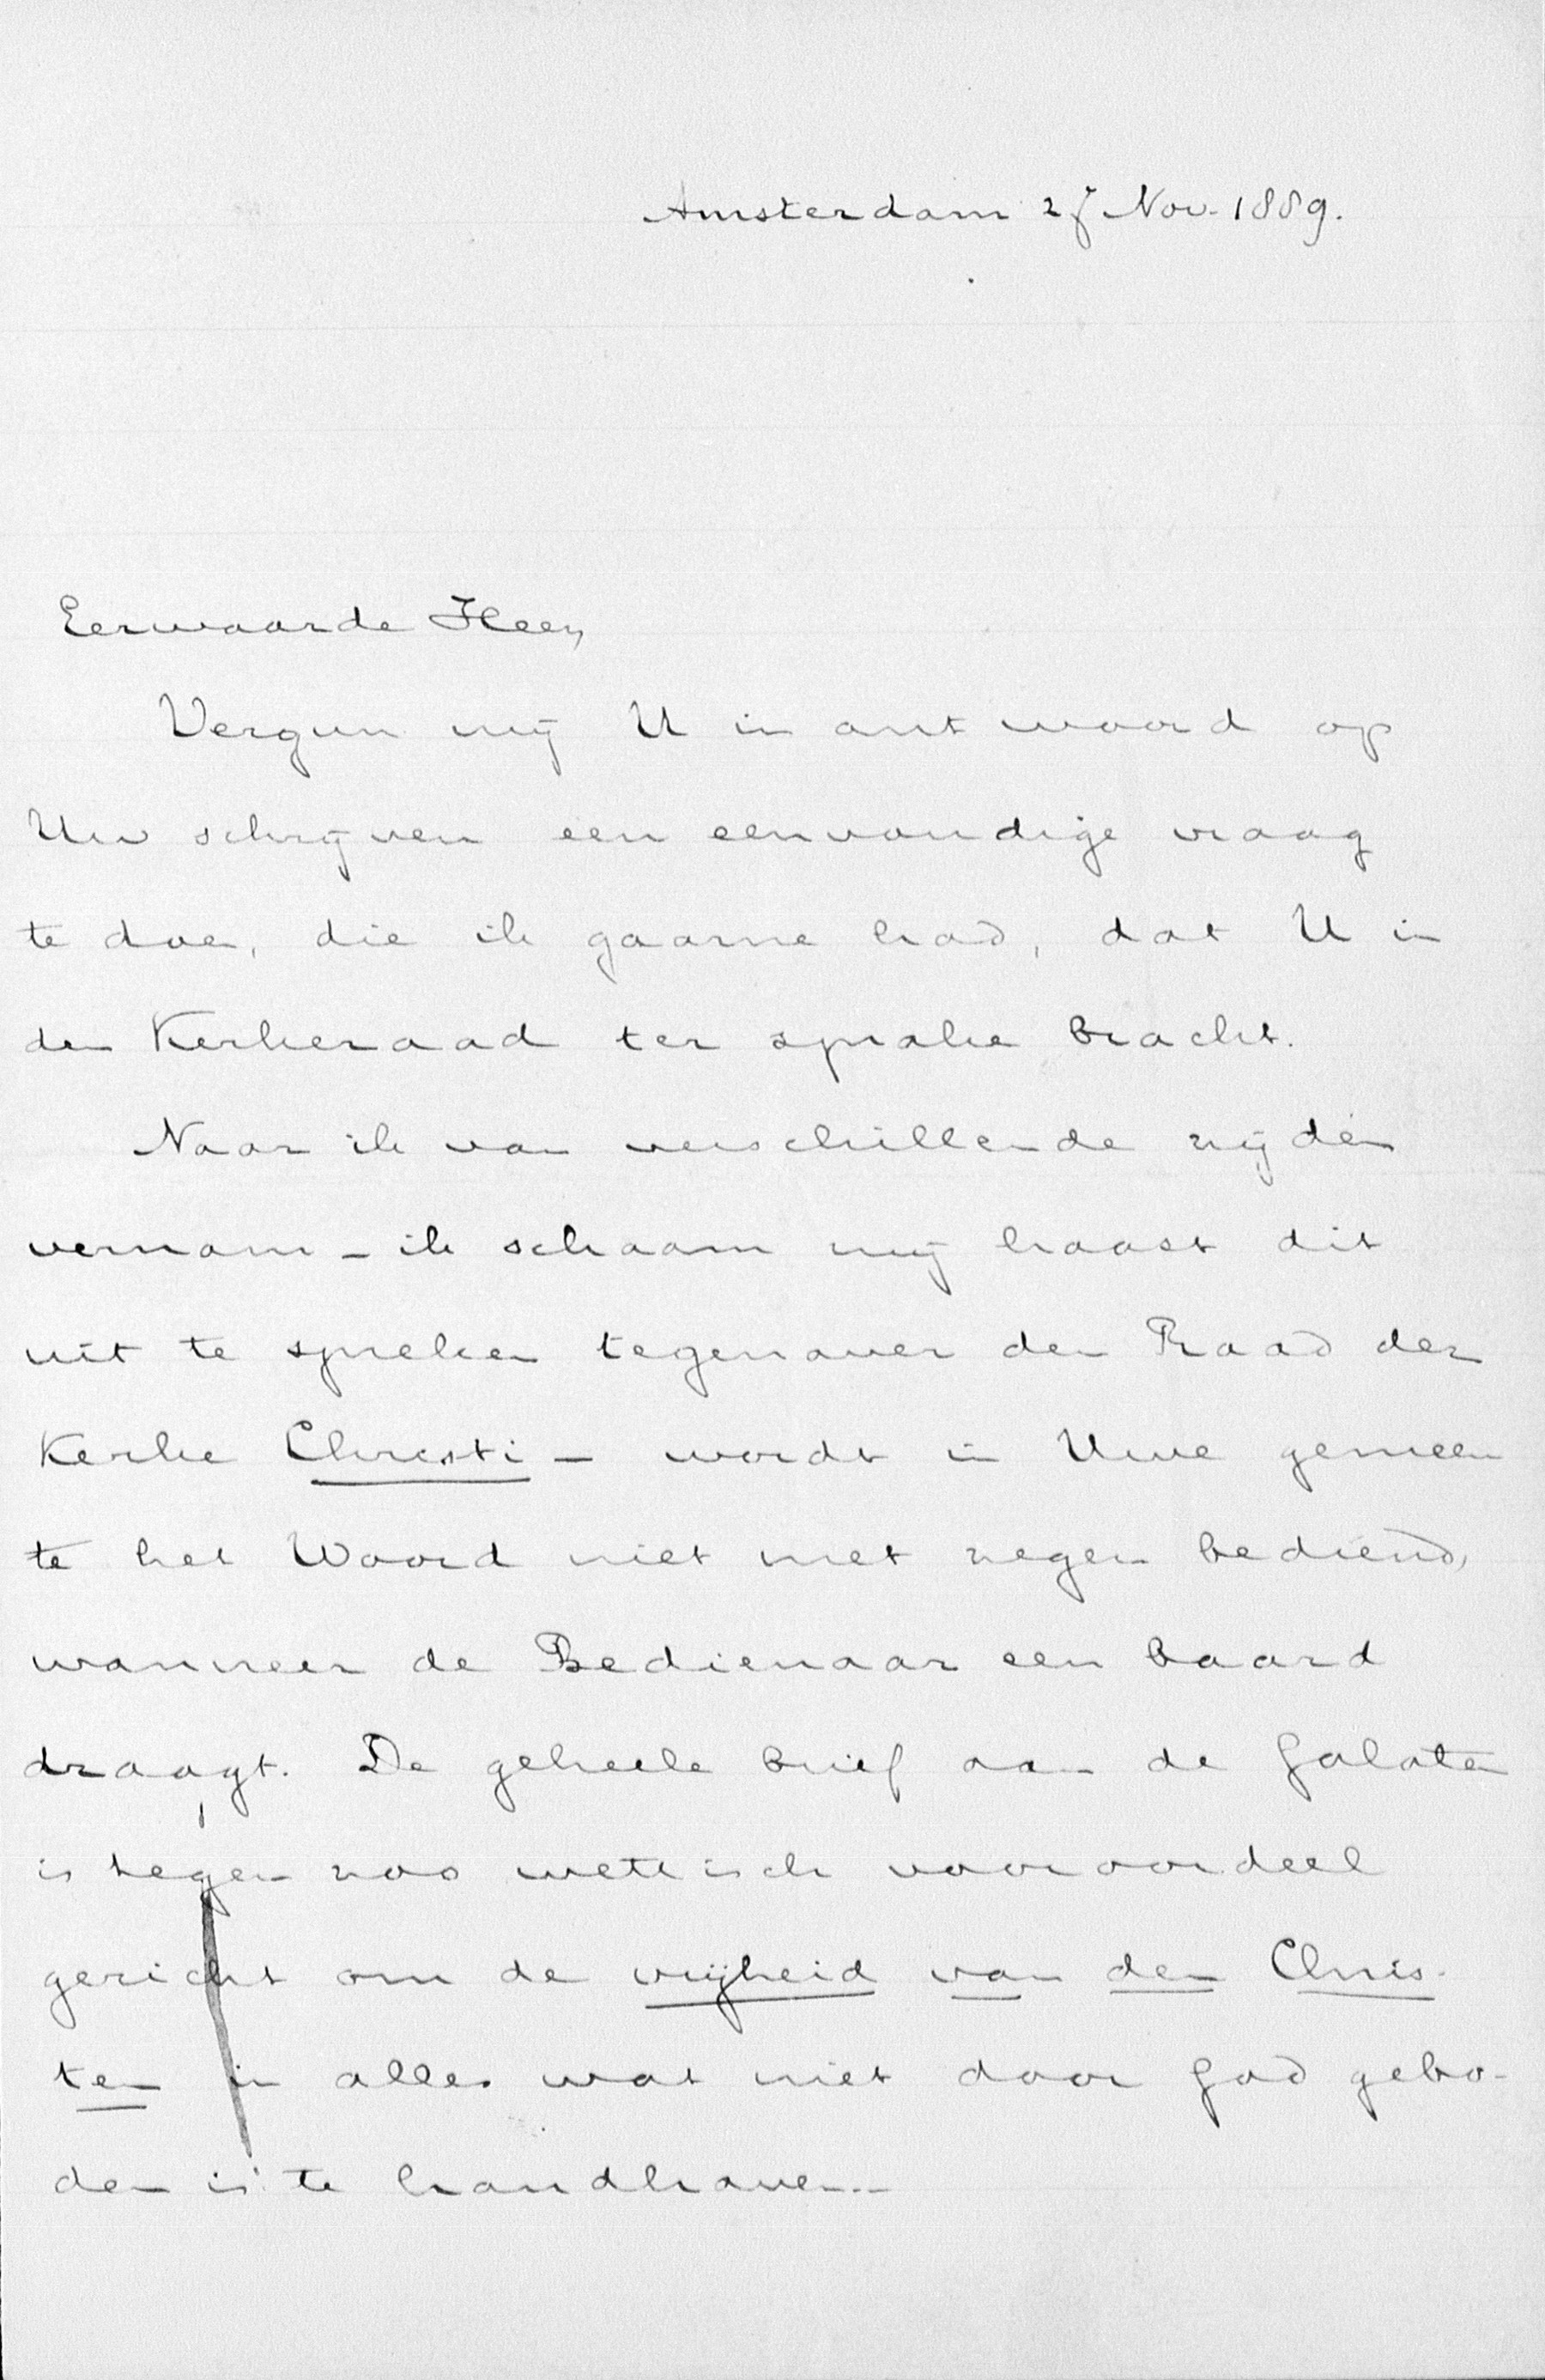 Amsterdam 27 Nov. 1889.
Eerwaarde Heer,
Vergun mij U in antwoord op
Uw schrijven een eenvoudige vraag
te doen, die ik gaarne had, dat U in
den Kerkeraad ter sprake bracht.
Naar ik van verschillende zijden
vernam - ik schaam mij haast dit
uit te spreken tegenover den Raad der
Kerke Christi - wordt in Uwe gemeen
te het Woord niet met zegen bediend,
wanneer de Bedienaar een baard
draagt. De geheele brief aan de Galaten
is tegen zoo wettisch vooroordeel
gericht om de vrijheid van den Chris-
ten in alles wat niet door God gebo-
den is te handhaven.-